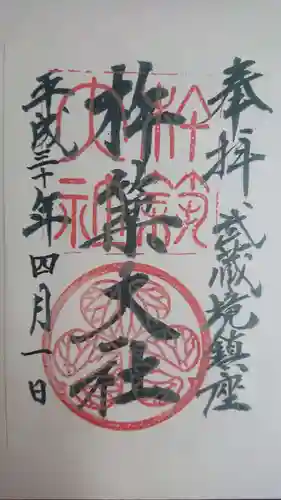 奉拝、武蔵境鎮座
杵築大社
平成三十年四月一日
杵築
大社